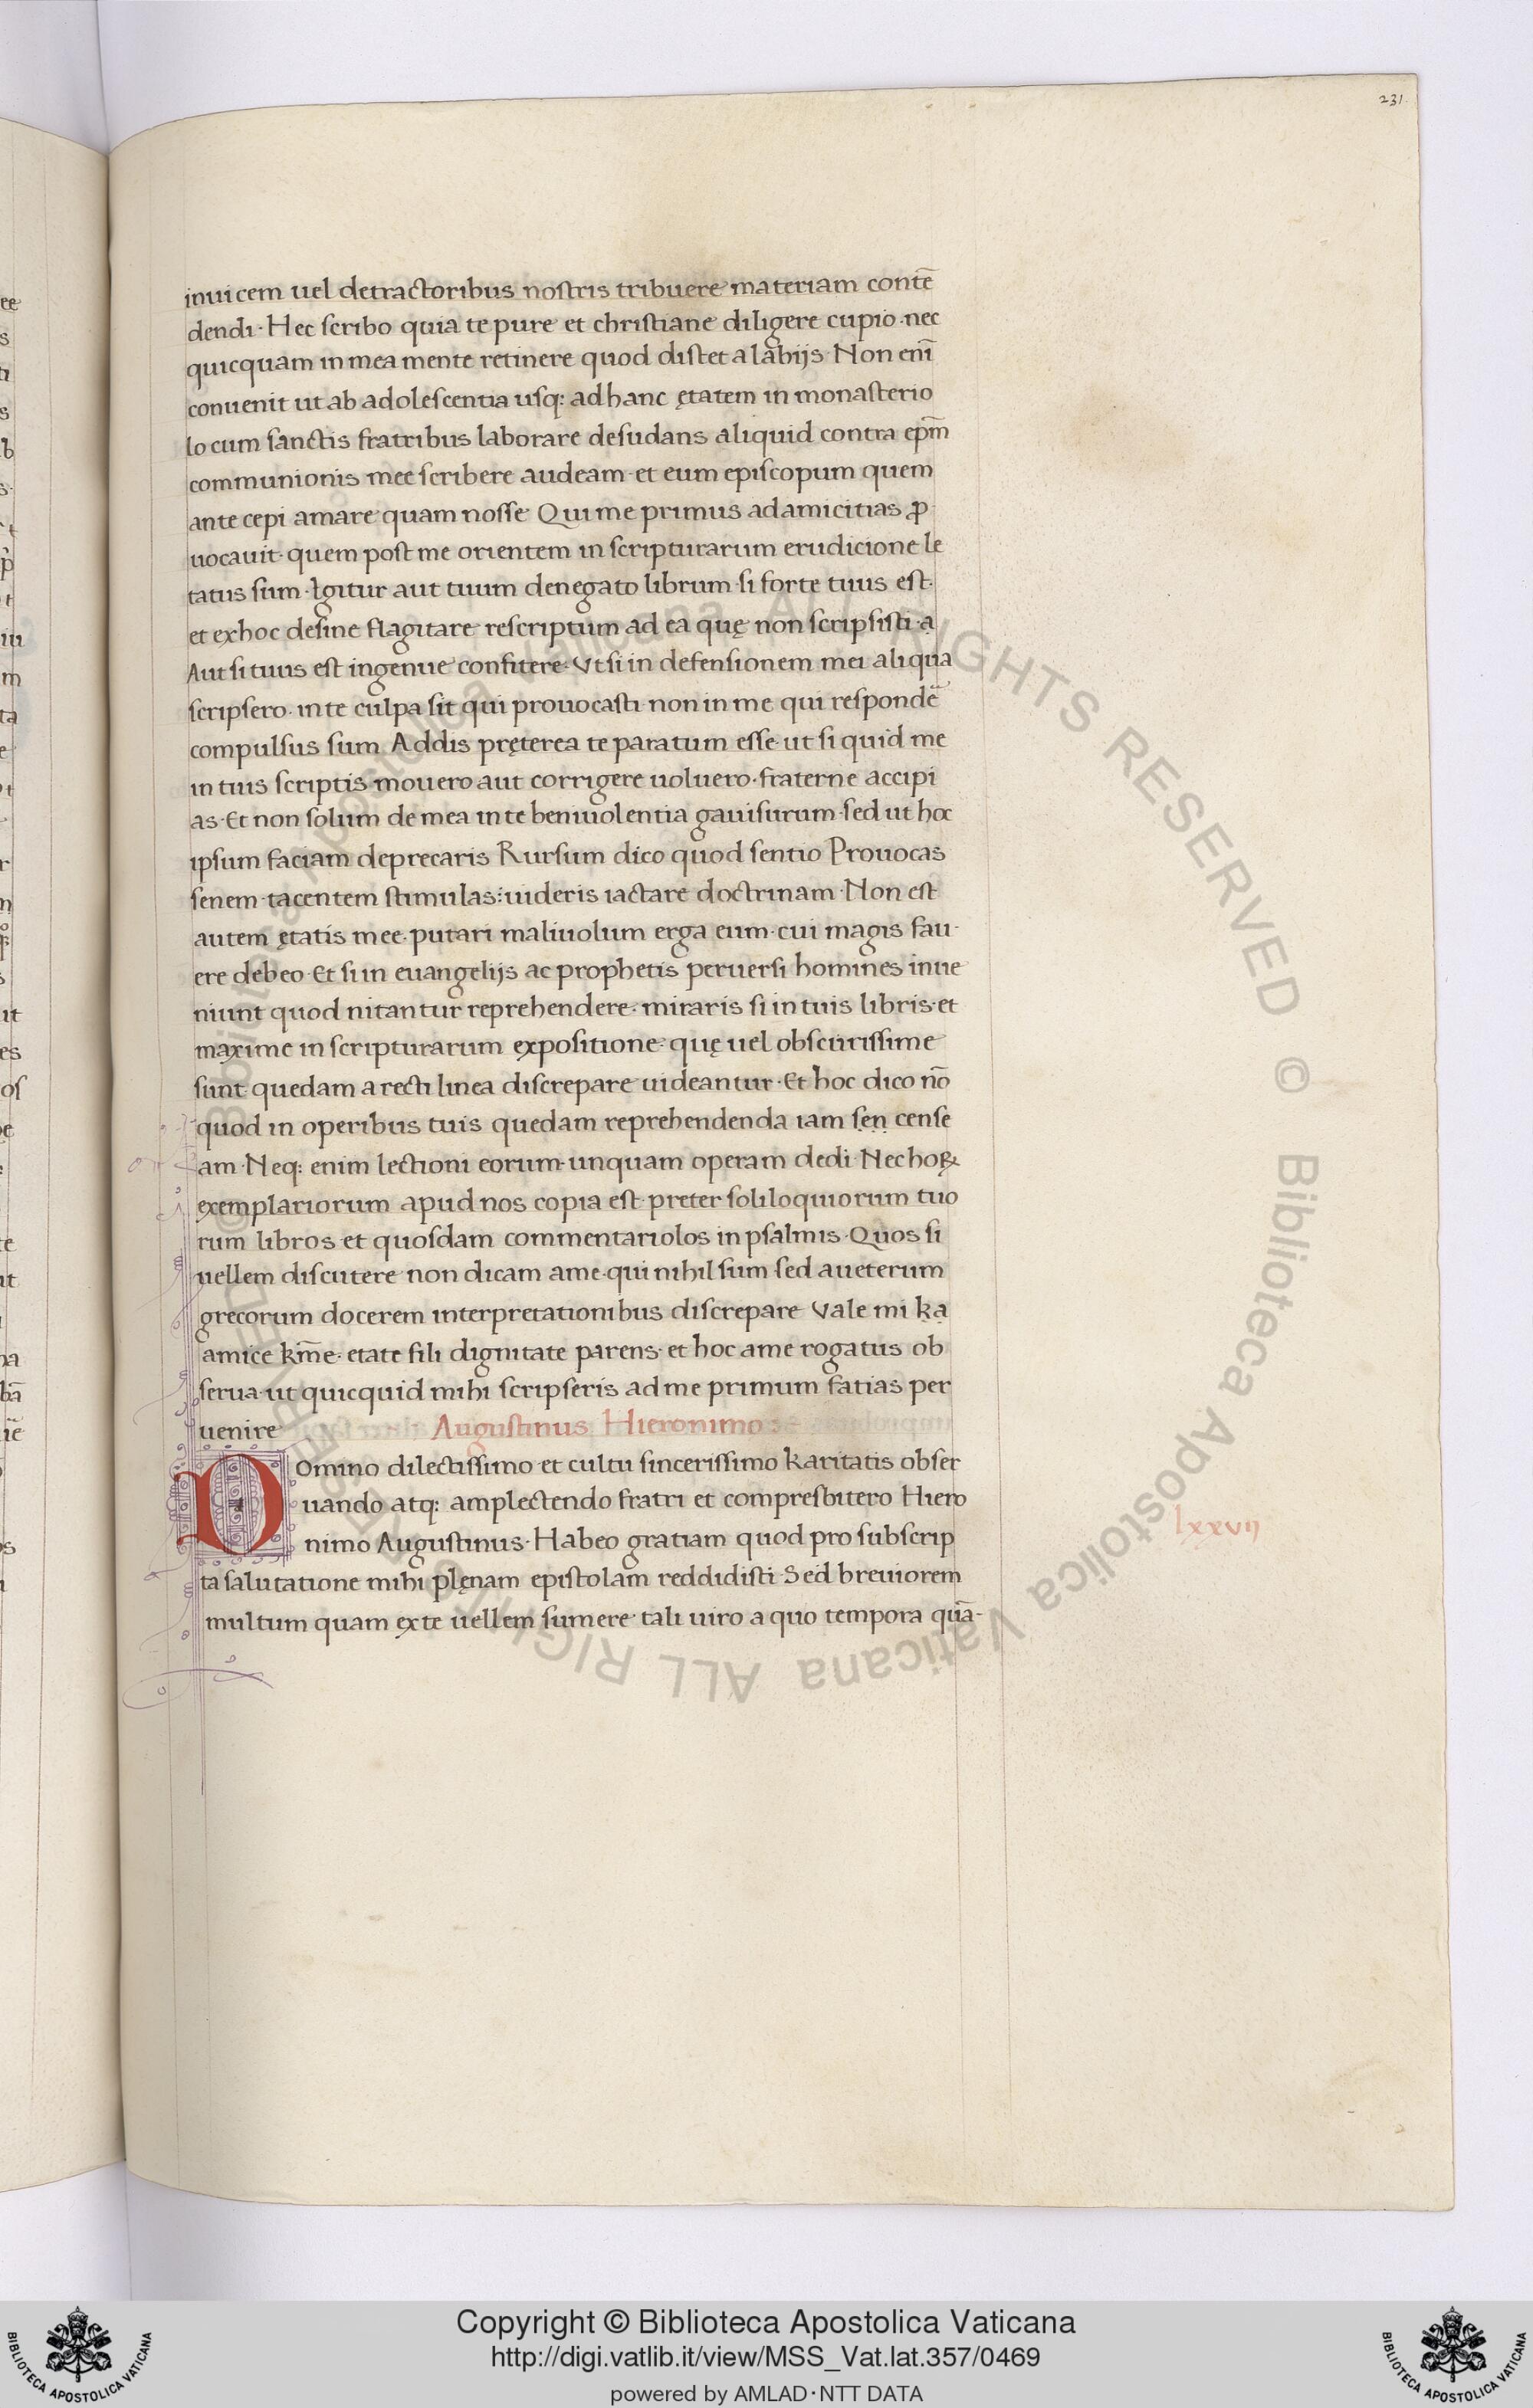 231.
inuicem uel detractoribus nostris tribuere materiam contē
dendi· Hec scribo quia te pure et christiane diligere cupio·nec
quicquam in mea mente retinere quod distet a labijs· Non eni̅
conuenit ut ab adolescentia usq: ad hanc ętatem in monasterio
lo cum sanctis fratribus laborare desudans aliquid contra ep̅m
communionis mee scribere audeam· et eum episcopum quem
ante cepi amare quam nosse Qui me primus ad amicitias ꝓ
uocauit· quem post me orientem in scripturarum erudicione le
tatus sum· Igitur aut tuum denegato librum·si forte tuus est·
et ex hoc desine flagitare rescriptum ad ea quę non scripsisti·ạ
Aut si tuus est ingenue confitere· Vt si in defensionem mei aliqua
scripsero· in te culpa sit qui prouocasti·non in me qui respondē
compulsus sum. Addis pręterea te paratum esse·ut si quid me
in tuis scriptis mouero aut corrigere uoluero·fraterne accipi
as· Et non solum de mea in te beniuolentia gauisurum·sed ut hoc
ipsum faciam deprecaris Rursum dico quod sentio Prouocas
senem·tacentem stimulas: uideris iactare doctrinam· Non est
autem ętatis mee·putari maliuolum erga eum·cui magis fau·
ere debeo· Et si in euangelijs ac prophetis peruersi homines inue
niunt quod nitantur reprehendere· miraris si in tuis libris·et
maxime in scripturarum expositione· quę uel obscurissime
sunt·quedam a recti linea discrepare uideantur· Et hoc dico nō
quod in operibus tuis quedam reprehendenda iam sẹṇ cense
am· Neq: enim lectioni eorum·unquam operam dedi· Nec hoꝝ
exemplariorum apud nos copia est·preter soliloquiorum tuo
rum libros·et quosdam commentariolos in psalmis· Quos si
uellem discutere non dicam a me·qui nihil sum·sed a ueterum
grecorum docerem interpretationibus discrepare Vale mi ḳạ
amice km̅e· etate fili dignitate parens· et hoc a me rogatus ob
serua·ut quicquid mihi scripseris ad me primum fatias per
uenire Augustinus Hieronimo
Domino dilectissimo et cultu sincerissimo karitatis obser
uando atq: amplectendo fratri et compresbitero Hiero
nimo Augustinus· Habeo gratiam quod pro subscrip
ta salutatione mihi plęnam epistolam reddidisti· Sed breuiorem
multum quam ex te uellem sumere·tali uiro a quo tempora quā-
lxxvij
ALL RIGHTS RESERVED © Biblioteca Apostolica Vaticana
Copyright © Biblioteca Apostolica Vaticana
http://digi.vatlib.it/view/MSS_Vat.lat.357/0469
powered by AMLAD·NTT DATA
BIBLIOTECA APOSTOLICA VATICANA
BIBLIOTECA APOSTOLICA VATICANA